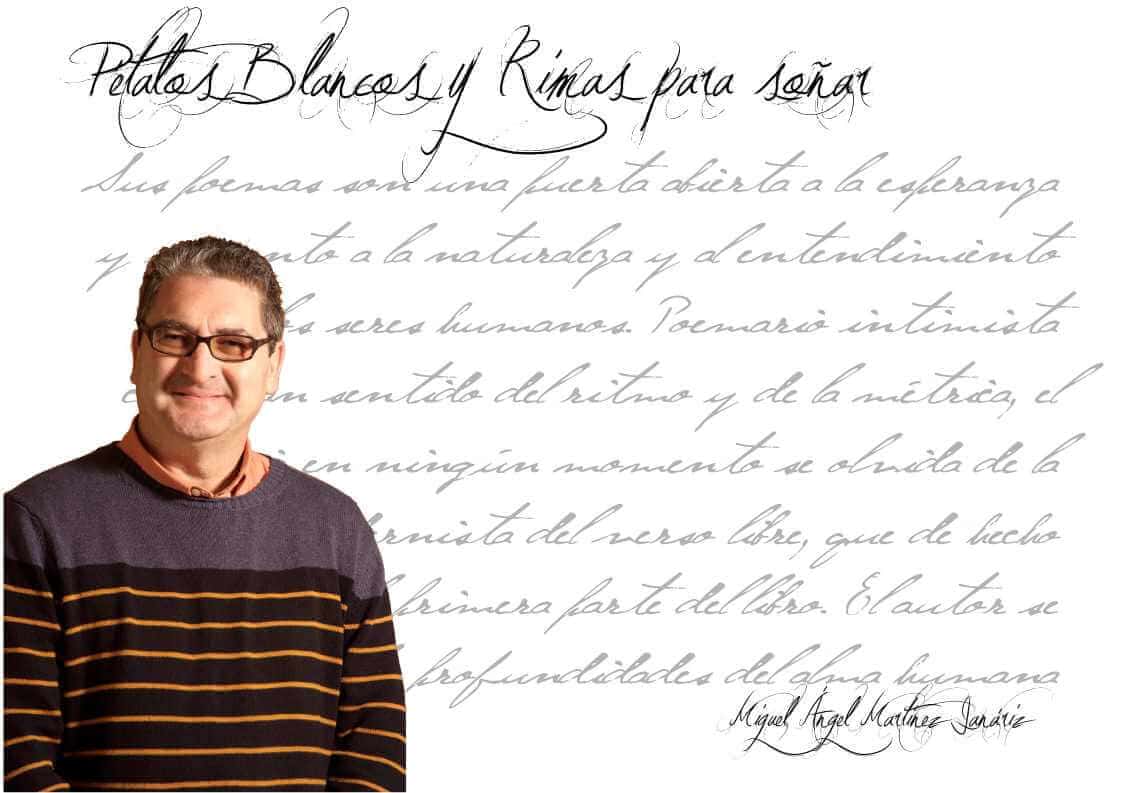 Pétalos Blancos y Rimas para soñar
Sus poemas son una puerta abierta a la esperanza
y nto a la naturaleza y al entendimiento
los seres humanos. Poemario intimista
an sentido del ritmo y de la métrica, el
en ningún momento se olvida de la
ernista del verso libre, que de hecho
primera parte del libro. El autor se
profundidades del alma humana
Miguel Ángel Martínez Janáriz